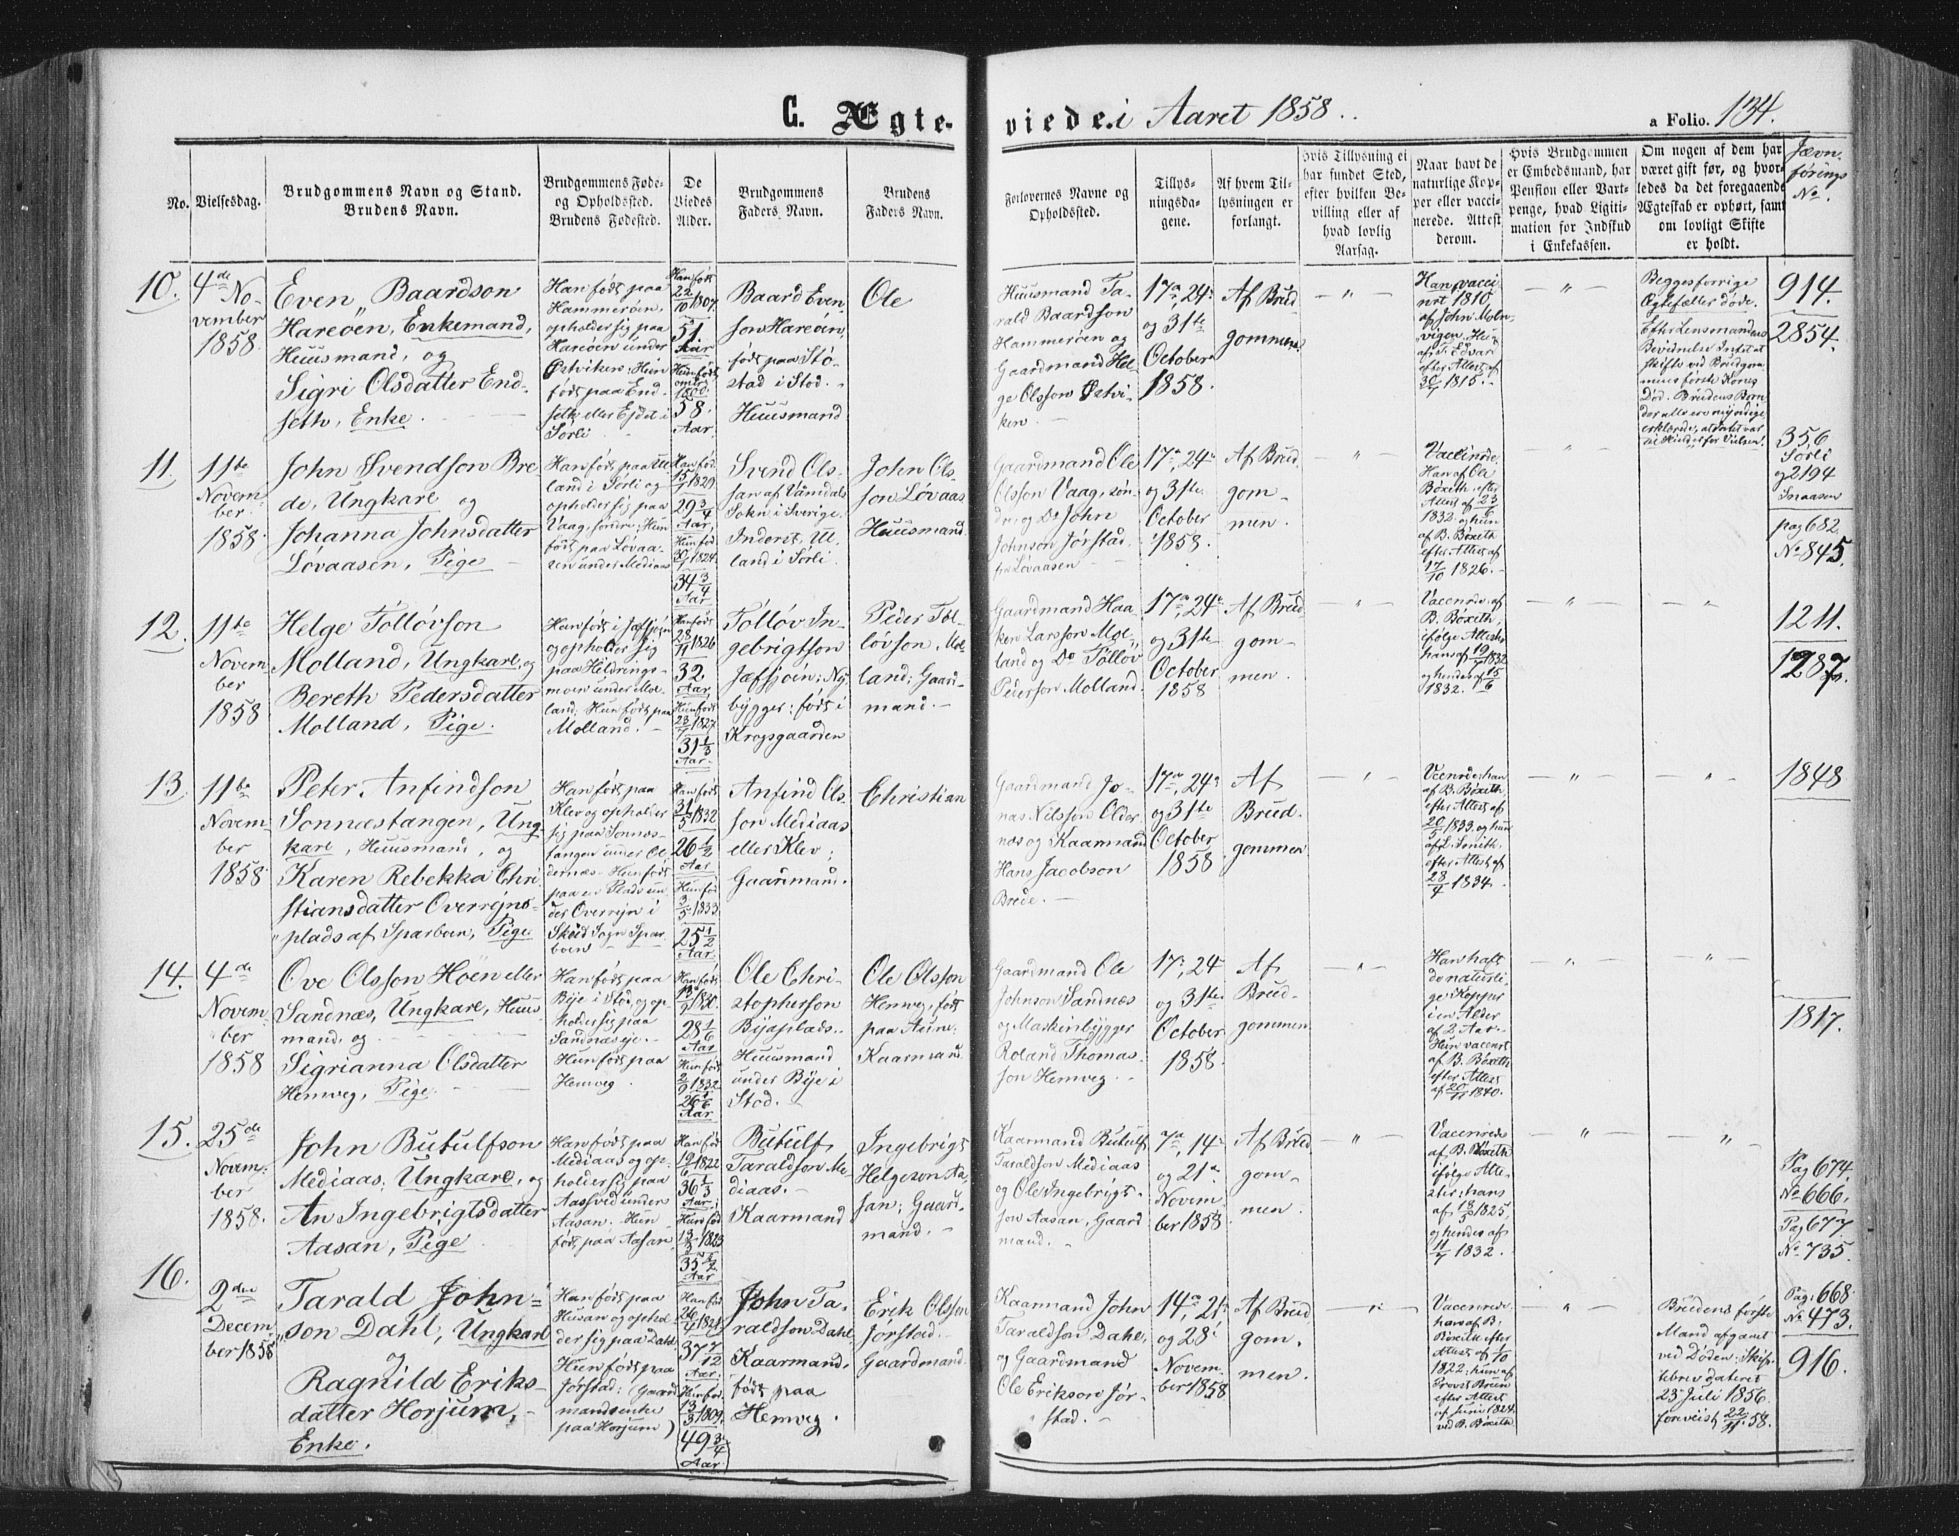 C. Ægte-
viede i Aaret 1858.
a Folio. 134.
No.
Vielsesdag.
Brudgommens Navn og Stand.
Brudens Navn.
Brudgommens Føde-
og Opholdssted.
Brudens Fødested.
De
Viedes
Alder.
Brudgommens
Faders Navn.
Brudens
Faders Navn.
Forlovernes Navne og
Opholdssted.
Tillys-
ningsda-
gene.
Af hvem Til-
lysningen er
forlangt.
Hvis Tillysning ei
har fundet Sted,
efter hvilken Be-
villing eller af
hvad lovlig
Aarsag.
Naar havt de
naturlige Kop-
per eller vacci-
nerede. Attest
derom.
Hvis Brudgommen
er Embedsmand, har
Pension eller Vart-
penge, hvad Ligiti-
mation for Indskud
i Enkekassen.
Om nogen af dem har
været gift før, og hvor-
ledes da det foregaaende
Ægteskab er ophørt, samt
om lovligt Skifte
er holdt.
Jævn-
førings
No.
10.
4de No-
vember
1858.
Even Baardson
Hareöen, Enkemand,
Huusmand, og
Sigri Olsdatter End-
seth, Enke.
Han født paa
Hammeröen,
opholder sig paa
Hareöen under
Østviken; Hun
født paa End-
seth eller Ejdet i
Sörli
Han født
22/10 1807.
51
Aar
Hun født
omtr.
1800.
58.
Aar.
Baard Even-
son Hareöen,
født paa Stö-
stad i Stod.
Huusmand
Ole
Huusmand Ta-
rald Baardson
Hammeröen og
Gaardmand Hel-
ge Olsson Østvi-
ken.
17de, 24de
og 31te
October
1858.
Af Brud
gommen.
Han vacci
nrt 1810,
af John Moln-
vigen, Hun
af T. Edvar
1815.
Begges forrige
Ægtefæller døde.
Efter Lensmandens
Bevidnelse Intet at
skifte ved Brudgom-
mens første Kones
Död. Brudens Børn
der alle ere myndige
erklærede, at intet var
til Hinder for Vielsen.
914.
2854.
11.
11te
Novem-
ber
1858.
John Svendson Bre-
de, Ungkarl og
Johanna Johnsdatter
Lövaasen, Pige
Han født paa Ul-
land i Sörli og
opholder sig paa
Vaag, söndre; Hun
født paa Lövaa-
sen under Mediaas
Han fød.
15/1 1829
29 3/4
Aar,
Hun fød
30/1 1824.
34 3/4
Aar
Svend Ols-
san af Vamdals
Sokn i Sverige,
Inderst, Ul-
land i Sörli.
John Ols-
son Lövaas
Huusmand
Gaardmand Ole
Olsson Vaag, søn-
dre, og Do John
Johnson Jörstad
fra Lövaasen
17de, 24de
og 31te
October
1858.
Af Brud-
gom-
men.
Vaccinrde
Han af Ole
Böxeth, efter
Attest af 23/6
1832. og hun
af B. Böxeth
efter Attest af
17/10 1826.
356
Sörli
og 2194
Snaasen
pag 682
No 845.
12.
11te
Novem
ber
1858
Helge Töllövson
Molland, Ungkarl, og
Bereth Pedersdatter
Molland, Pige.
Han født i Jæfsjøen
og opholder sig
paa Heldrings-
moen under Mol-
land; Hun født paa
Molland.
Han født
28/11 1826
32
Aar
Hun født
23/7 1827
31 1/3
Aar.
Töllöv In-
gebrigtson
Jæfsjöen; Ny-
bygger; født i
Krogsgaarden
Peder Töl-
lövson, Mol-
land; Gaard-
mand.
Gaardmand Haa-
ken Larsson Mol-
land og Do Töllöv
Peterson Molland.
17de, 24de
og 31te
October
1858
Af Brud
gom-
men.
Vaccnrde af
B. Böxeth,
ifølge Attester
hans af 19/7 1832
og hendes af 15/6
1832.
1211.
1287.
13.
11te
Novem
ber
1858
Peter Anfindson
Sonnæstangen, Ung-
karl, Huusmand, og
Karen Rebekka Chri
stiansdatter Overrejns-
plads af Sparboen, Pige
Han født paa
Klev og opholder
sig paa Sonnæs-
tangen under Ol-
dernæs. Hun født
paa en Plads un
der Overrejn i
Skeid Sogn Spar
boen
Han født
31/5 1832
26 1/2
Aar
Hun fød
3/5 1833
25 1/2
Aar
Anfind Ols-
son Mediaas
eller Klev;
Gaardmand.
Christian
Gaardmand Jo-
nas Nilsson Older
næs og Kaarmand
Hans Jacobson
Brede.
17de, 24de
og 31te
October
1858
Af
Brud-
gommen
Vccnrde; han
af B. Böxeth
efter Attest af
20/5 1833. og hun
af L. Smith.
efter Attest af
28/4 1834.
1848
14.
4de
Novem
ber
1858
Ove Olsson Höen eller
Sandnæs, Ungkarl, Huus-
mand, og
Sigrianna Olsdatter
Hemveg, Pige.
Han født paa
Bye i Stod, og op-
holder sig paa
Sandnæseje.
Hun født paa
Hemveg.
Han født
1830.
28 1/6
Aar
Hun født
2/9 1832
26 1/6
Aar
Ole Chri-
stopherson
Byaplads.
Huusmand
under Bye i
Stod.
Ole Olsson
Hemveg, født
paa Aune;
Kaarmand.
Gaardmand Ole
Johnson Sandnæs
og Maskinbygger
Roland Thomas-
son Hemveg.
17de, 24
og 31te
October
1858.
Af
Brud-
gommen.
Han haft
de naturli-
ge Kopper
i en Alder
af 2 Aar
Hun vaccnrt
af B. Böxeth
efter Attest
af 20/11 1840.
1817.
15.
25de
Novem-
ber
1858.
John Butulfson
Mediaas, Ungkarl, og
An Ingebrigtsdatter
Aasan, Pige
Han født paa
Mediaas og op-
holder sig paa
Aashved under
Aasan. Hun
født paa Aasan.
Han fød
19/6 1822
36 1/3
Aar;
Hun fød
1823
35 1/2
Aar
Butulf
Taraldson Me
diaas.
Kaarmand
Ingebrigt
Helgeson Aa-
san; Gaard-
mand.
Kaarmand Butulf
Taraldson Mediaas
og Ole Ingebrigt-
son Aasan, Gaard
mand.
7de, 14de
og 21de
Novem
ber 1858
Af Brud
gom-
men.
Vaccnrede
af B. Böxeth
ifølge Atte-
ster; hans
af 18/5 1825,
og hendes af
11/7 1832.
Pag 674
No 666.
Pag 677
No 735.
16.
2den
Decem
ber 1858
Tarald John-
son Dahl, Ungkarl
og
Ragnild Eriks-
datter Horjum,
Enke.
Han født paa
Husan og ophol-
der sig paa Dahl.
Hun født paa
Jörstad; (Gaard
mandsenke
paa Horjum)
Han fød
26/4 1821
37 7/12
Aar.
Hun fød.
13/3 1809.
(49 3/4
Aar)
John Ta-
raldson Dahl
Kaarmand.
født paa
Hemveg.
Erik Olsson
Jørstad.
Gaardmand.
Kaarmand John
Taraldson Dahl,
og Gaardmand
Ole Erikson Jör-
stad.
14de, 21de
og 28de
Novem
ber 1858
Af Brud
gom-
men.
Vaccnrede
han af B.
Böxeth efter
Attest af 1/10
1822; hun af
Provst Bruun
efter Attest
af Juni 1824
ved B. Böxeth
Brudens første
Mand afgaaet
ved Døden; Skif-
tebrev dateret
23 Juli 1856
foreviist 22/11 58.
Pag. 668
No 473.
916.